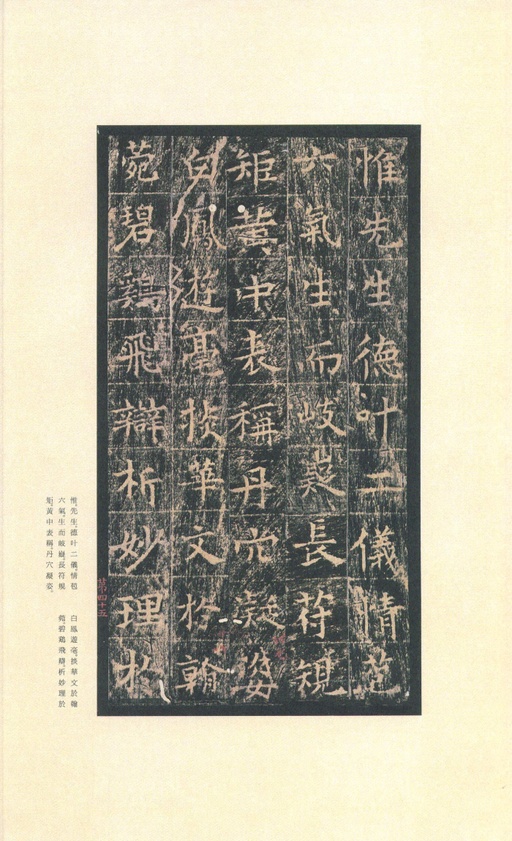 惟先生德叶二儀情苞
六氣生而岐嶷長符規
矩黃中表稱丹穴凝姿
白鳳遊亳掞華文於翰
菀碧鷄飛辯析妙理於
惟先生德叶二儀情苞
六氣生而岐嶷長符規
矩黃中表稱丹穴凝姿
白鳳遊亳掞華文於翰
菀碧鷄飛辯析妙理於
第四十五